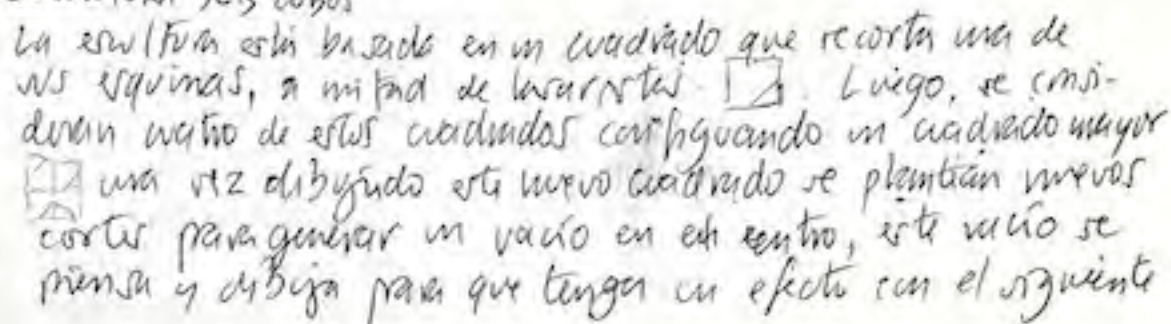 seis cubos
La escultura está basada en un cuadrado que recorta una de
sus esquinas, a mitad de las aristas. Luego, se consi-
deran cuatro de estos cuadrados configurando un cuadrado mayor
una vez dibujado este nuevo cuadrado se plantean nuevos
cortes para generar un vacío en el centro, este vacío se
piensa y dibuja para que tenga un efecto con el siguiente